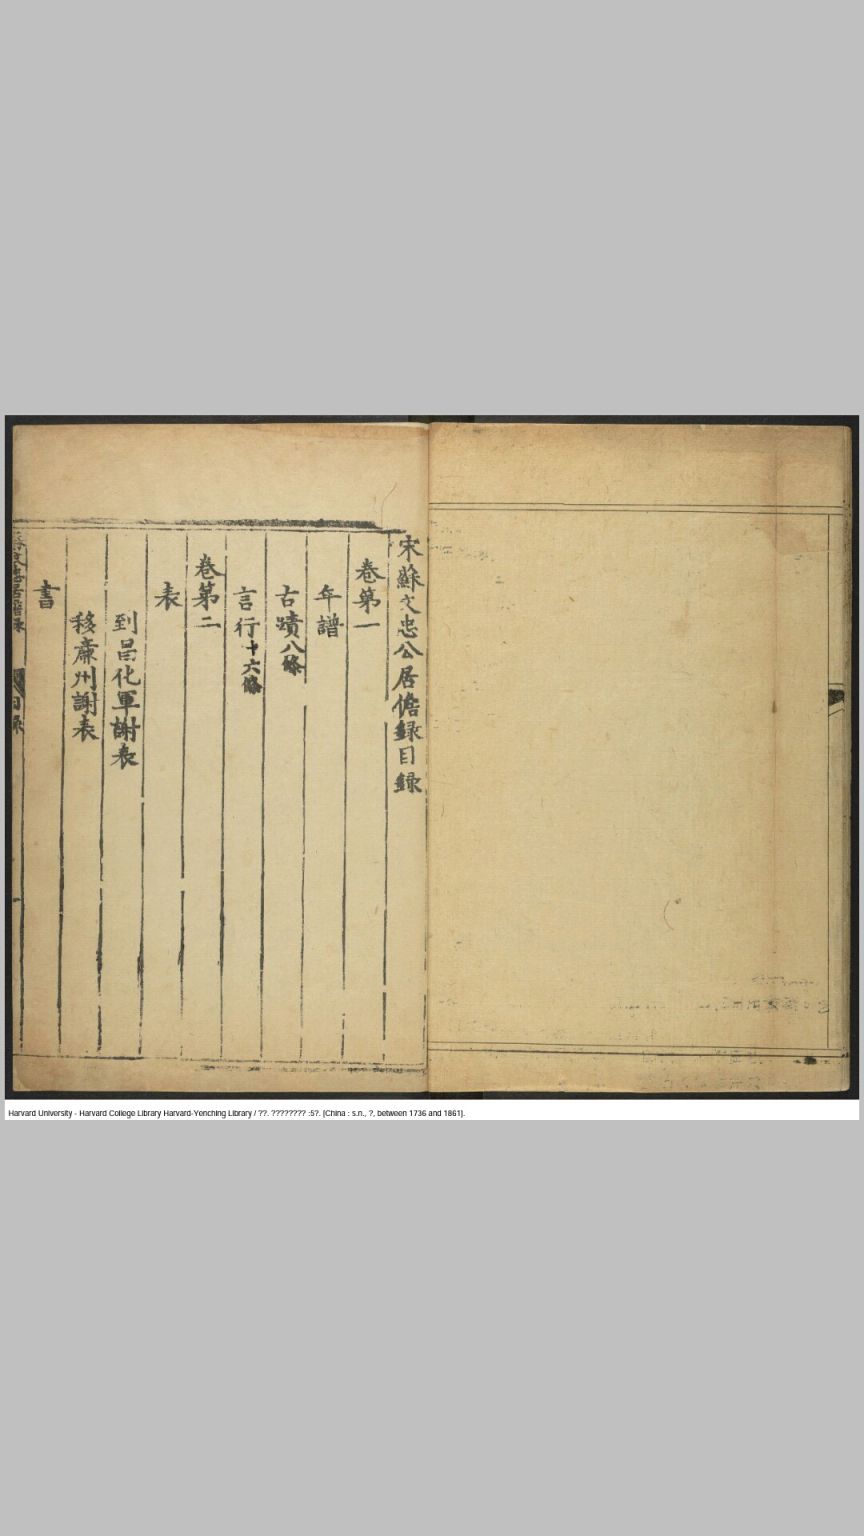 宋蘇文忠公居儋録目録
卷第一
年譜
古蹟八條
言行十六條
卷第二
表
到昌化軍謝表
移廉州謝表
書
目録
Harvard University - Harvard College Library Harvard-Yenching Library / ??. ???????? :5?. [China : s.n., ?, between 1736 and 1861].